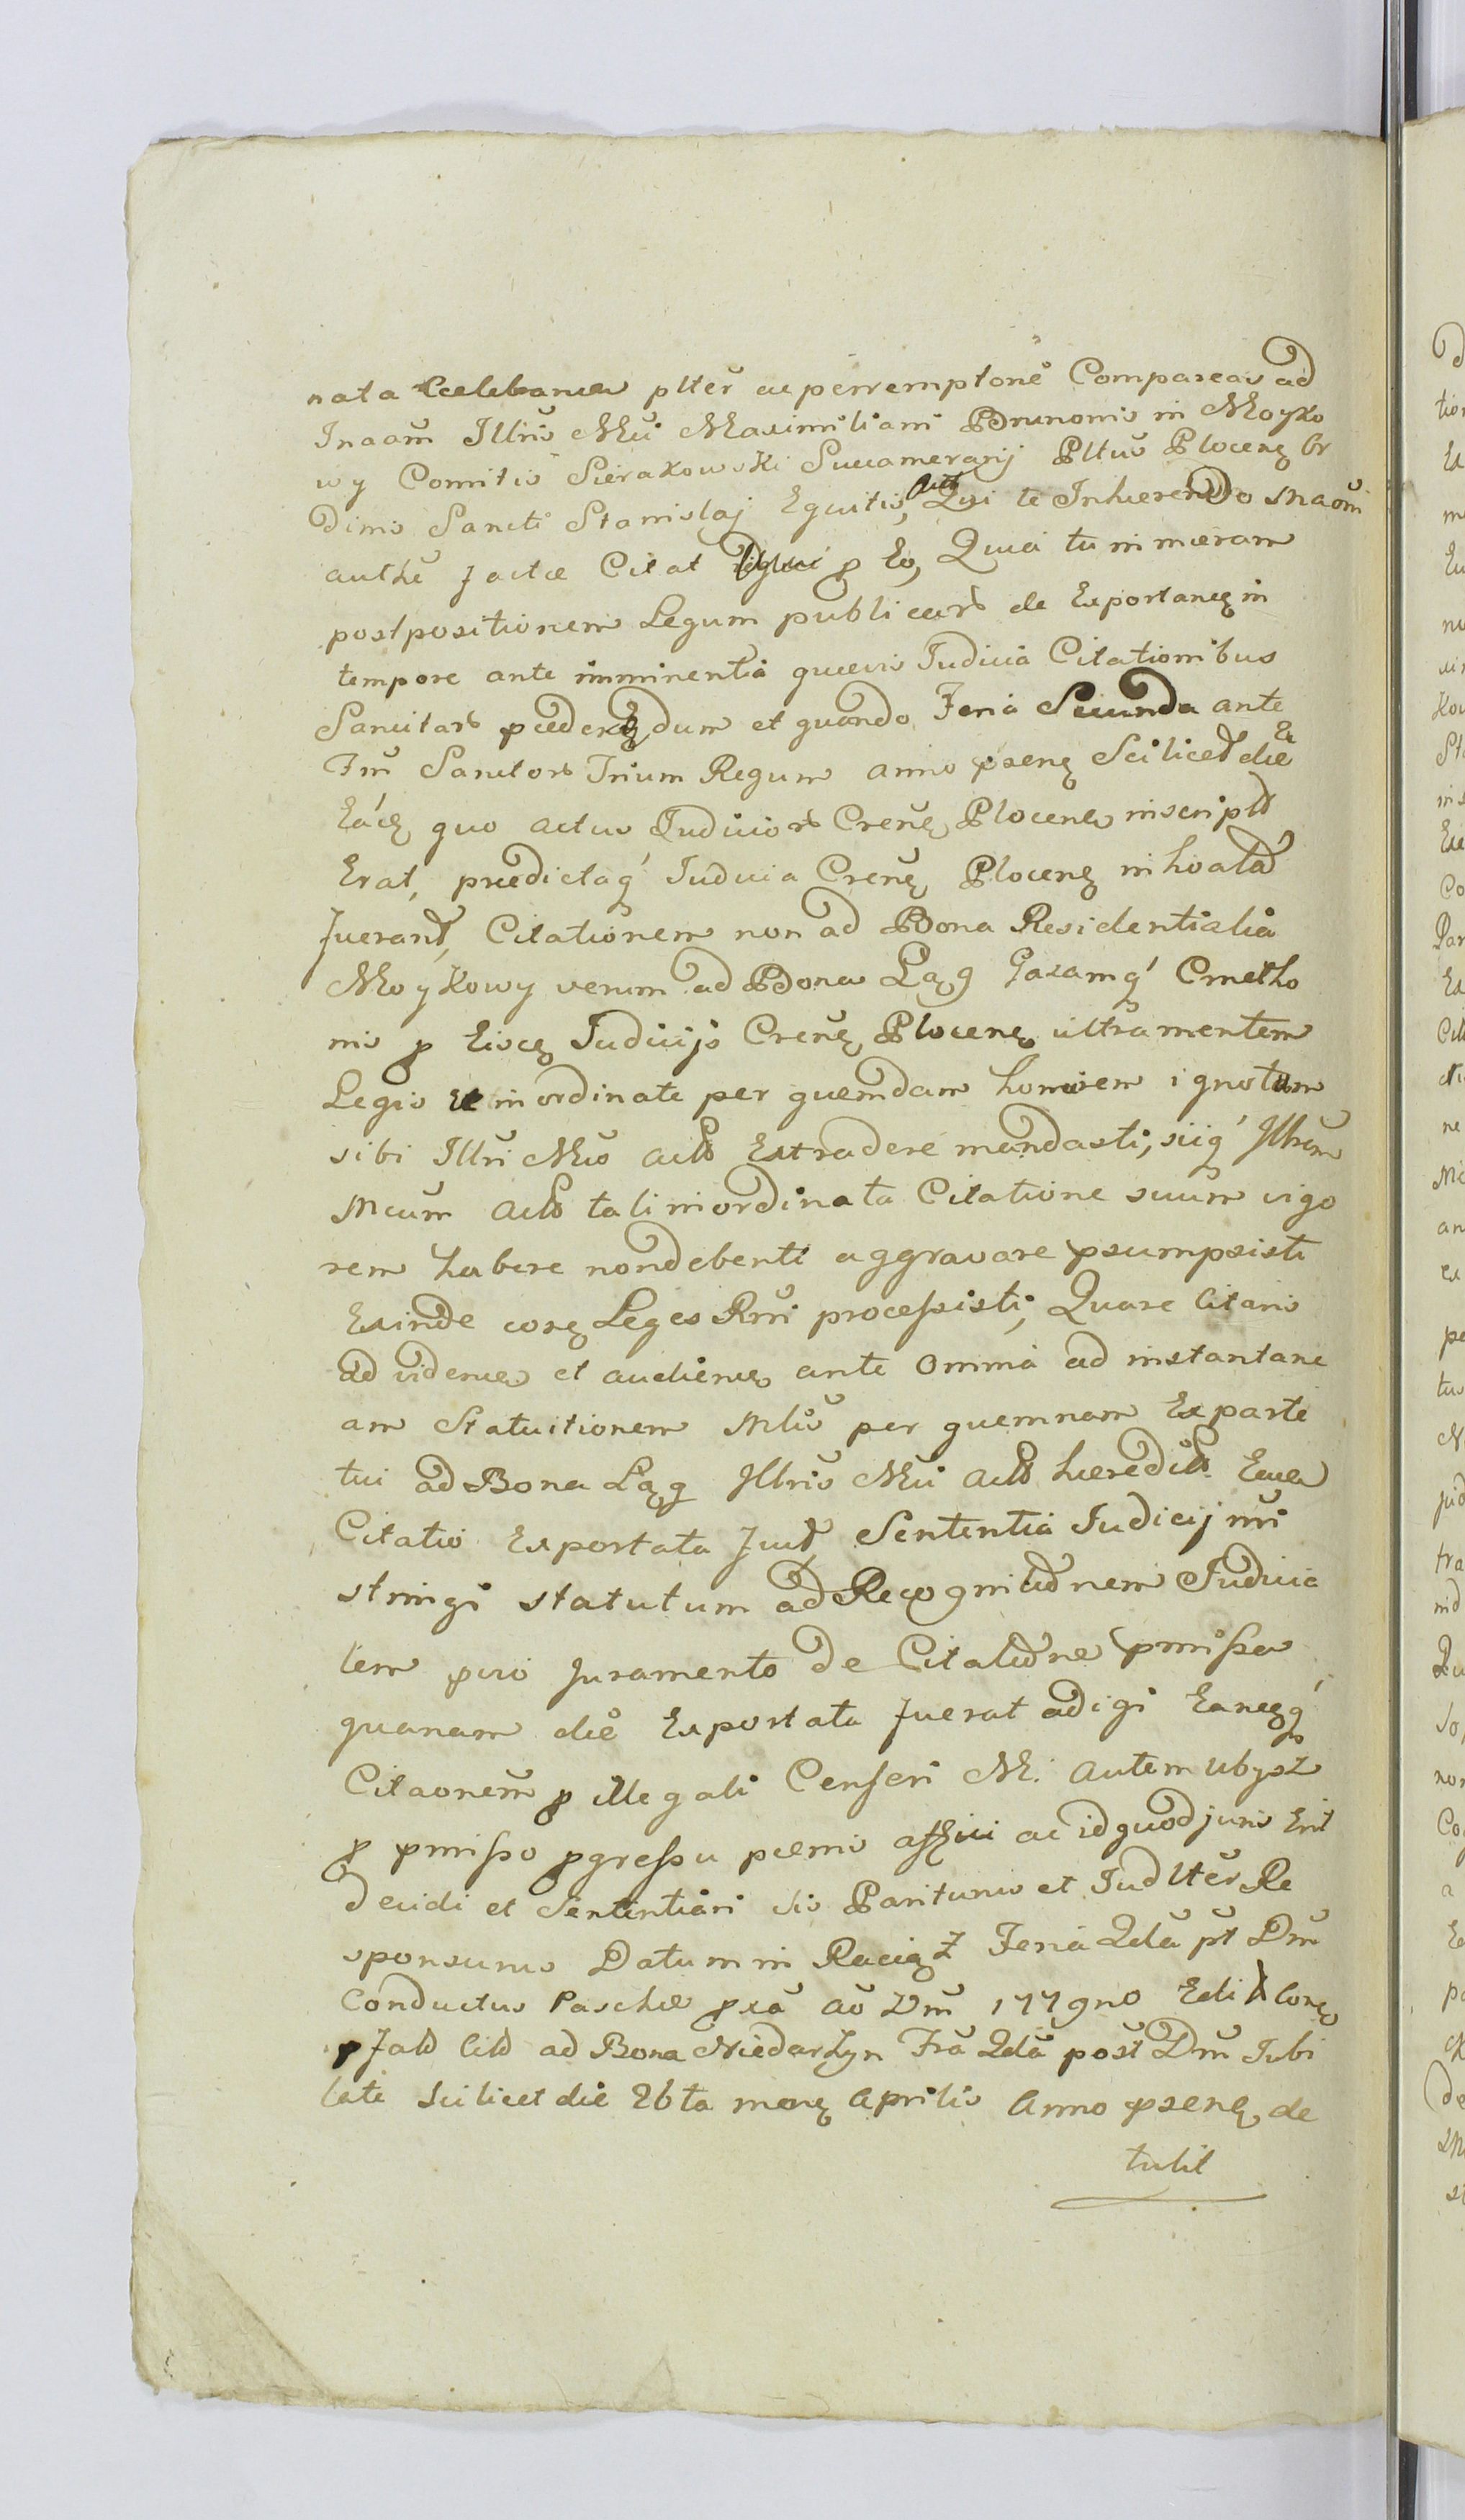 nata Celebranda plter ac perremptone Compareas ad
Inaam Illris Mci Maximiliani Brunonis in Moyko
wy Comitis Sierakowski Succamerarij Pltus Plocenę Or
dinis Sancti Stanislaj Equitis, Acts Qui te Inhaerendo Maom
authe factae Citat p Eo, Quia tu in meram
postpositionem Legum publicar de Exportanę in
tempore ante imminentia quaevis Judicia Citationibus
Sancitar praedendum et quando Feria Secunda ante
Fm Sanctor Trium Regum anno psenę Scilicet die Ea
Eácę quo actus Judicior Crenę Plocenę inscript
Erat, praedictaq Judicia Crenę Plocenę inhoata
fuerant, Citationem non ad Bona Residentialia
Moykowy verum ad Bona Ląg Gazamq Cmetho
nis p Eiscę Judicijs Crenę Plocenę ultra mentem
Legis et inordinate per quemdam hominem ignotum
sibi Illri Mco Acto Extradere mandasti, sicq Illrem
Mcum Acto tali inordinata Citatione suum vigo
rem habere non debenti aggravare psumpsisti
Exinde conę Leges Rni processisti, Quare Citaris
ad videndę et audiendę ante omnia ad instantane
am Statuitionem Mlis per quemnam Ex parte
tui ad Bona Ląg Illris Mci Acto haeredit Eaea
Citatio Exportata fuit, Sententia Judicij nri
stringi statutum ad Recognitionem Judicia
lem pvio Juramento de Citatione pmissa
quanam die Exportata fuerat adigi Eaneęq
Citaonem p illegali Censeri M. autem ubyst
p pmisso pgressu paenis affici ac id quod juris Erit
decidi et Sententiari sis Pariturus et Judlter Re
sponsurus Datum in Raciąż Feria 2da pt Dm
Conductus Paschae pxa Ao Dni 1779no Edit Conę
p Fato Cito ad Bona Niedarzyn Fra 2da post Dm Jubi
late Scilicet die 26ta menę Aprilis Anno psenę de
tulit